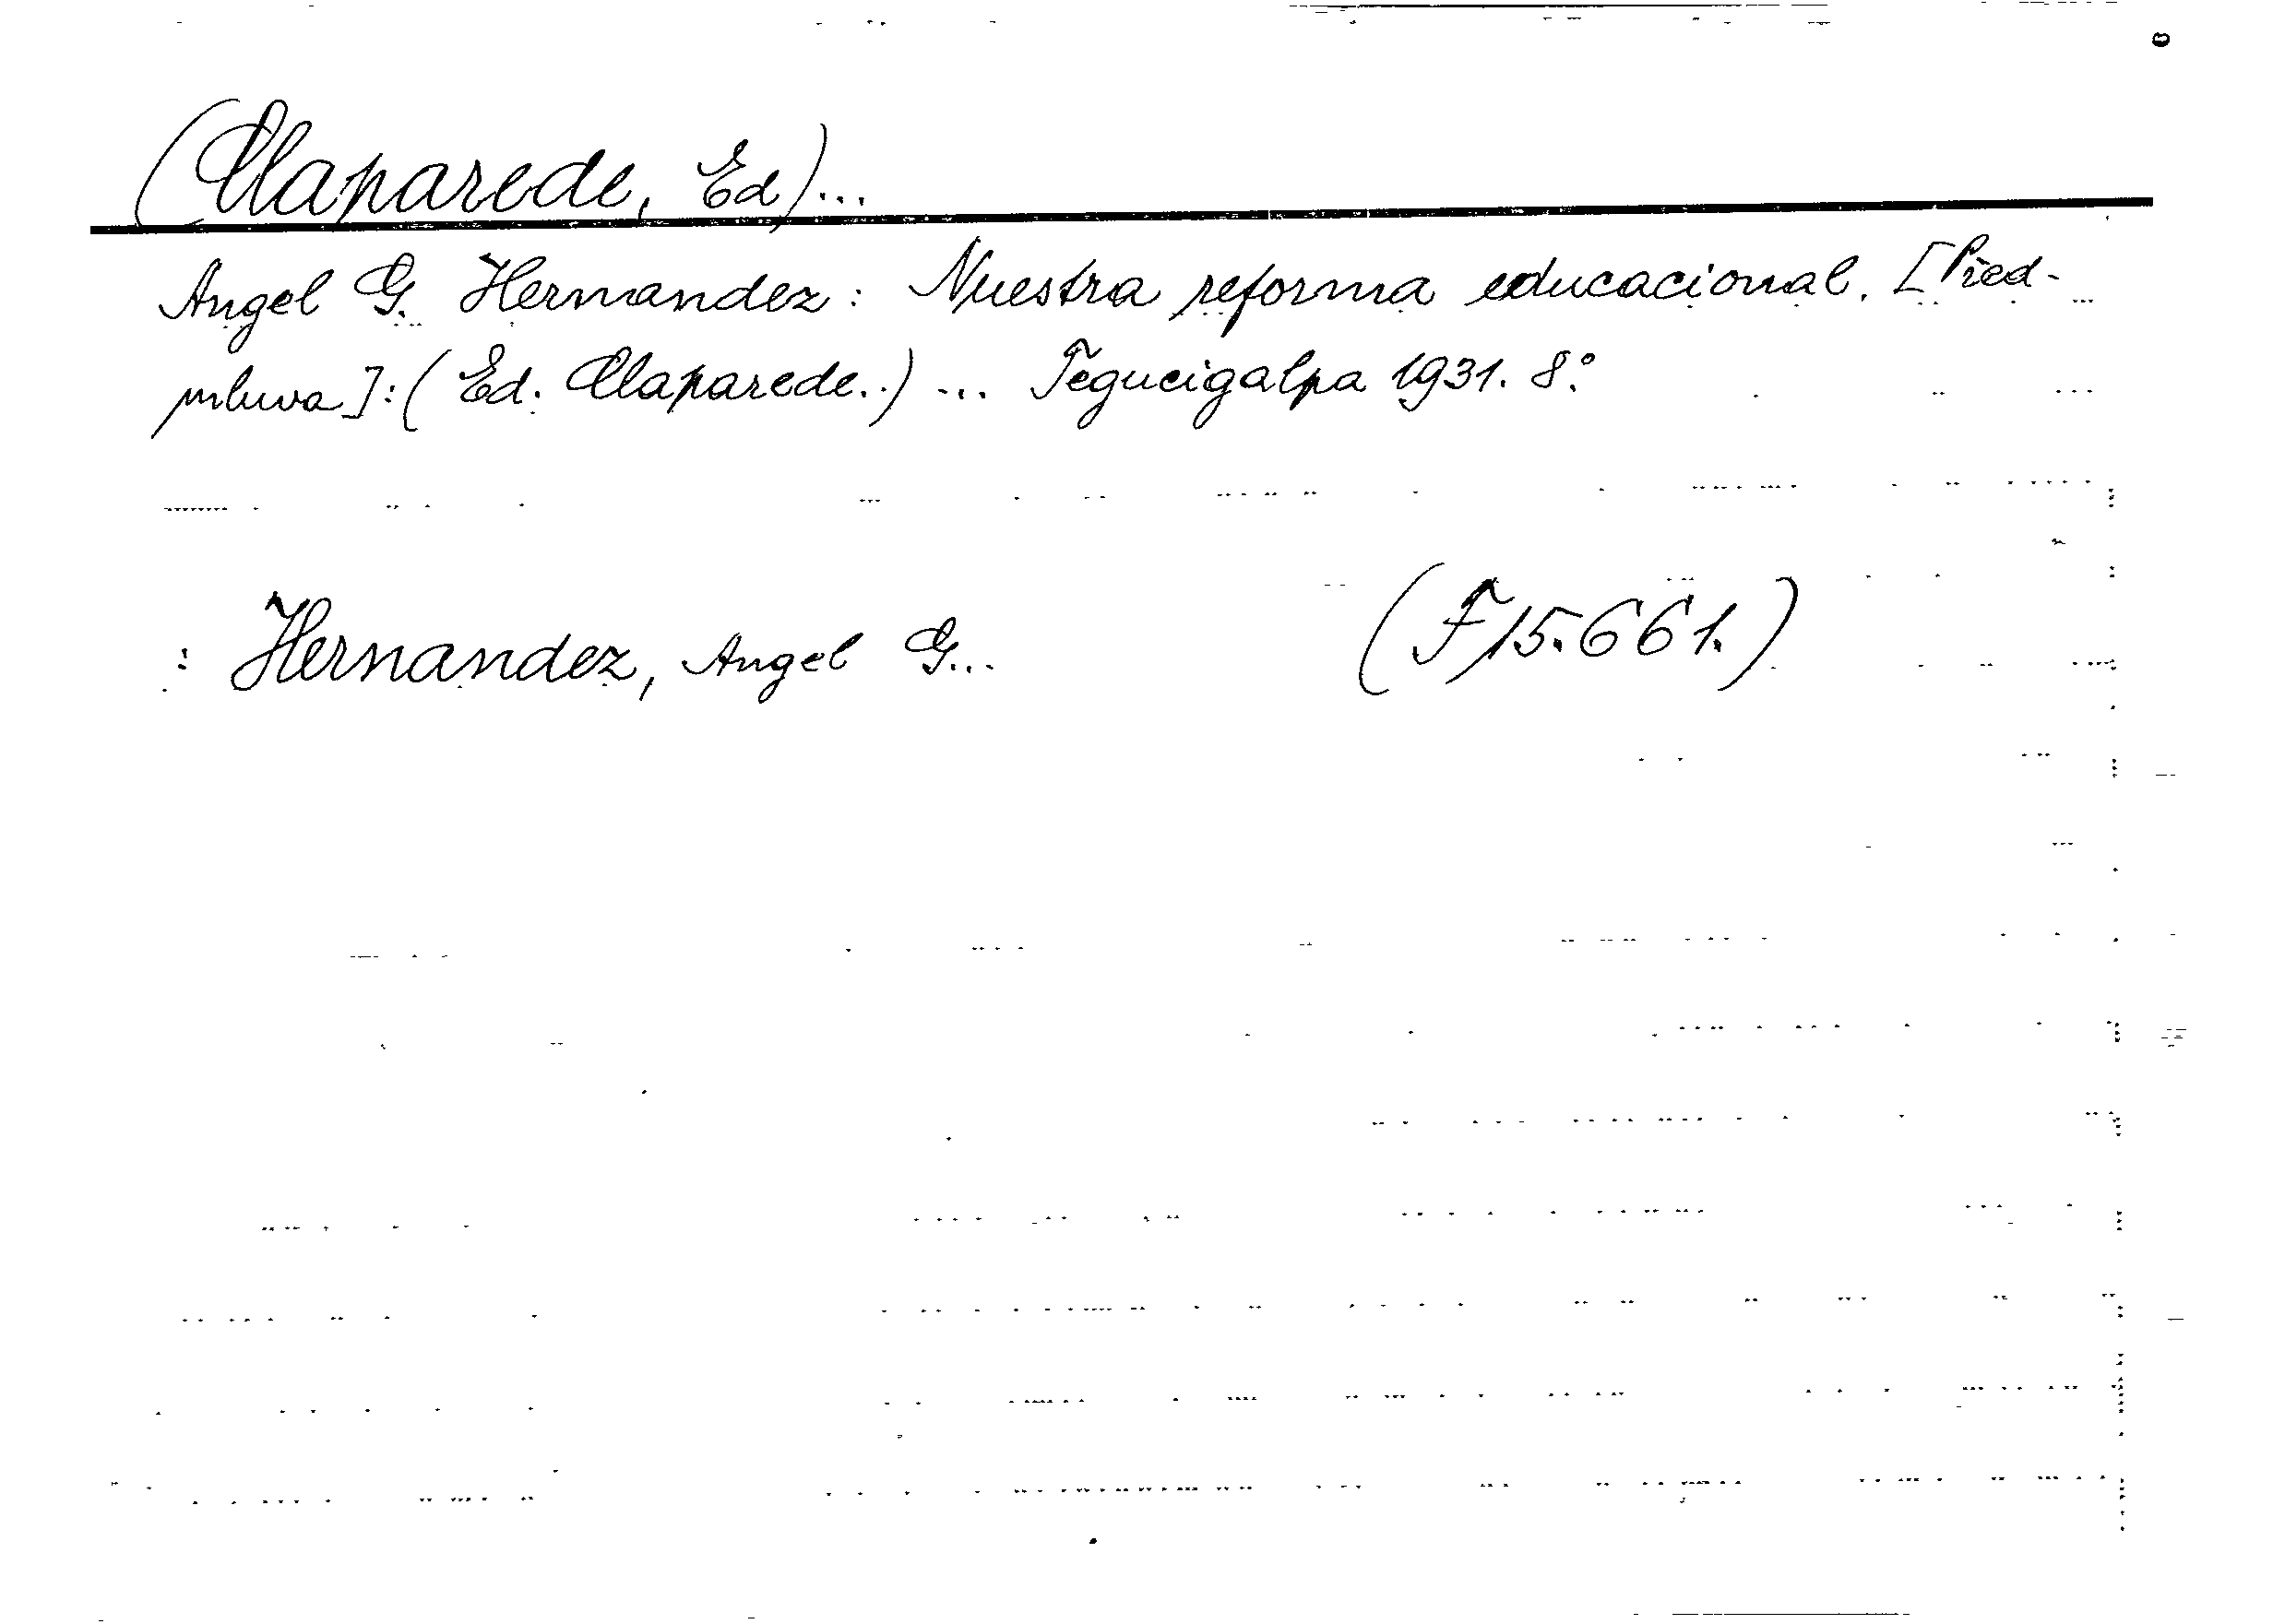 (Claparede, Ed)...
Angel G. Hernandez: Nuestra reforma educacional. [Před-
mluva]: (Ed. Claparede..) ... Tegucigalpa 1931. 8°.
: Hernandez, Angel G... (F 15.661.)